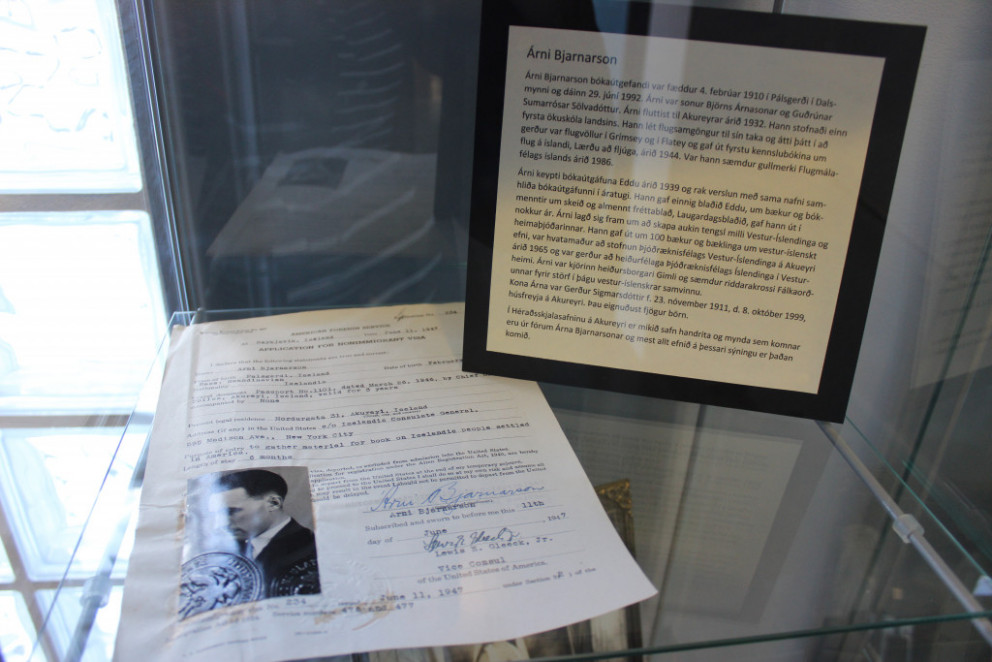 Árni Bjarnarson
Árni Bjarnarson bókaútgefandi var fæddur 4. febrúar 1910 í Pálsgerði í Dals-
mynni og dáinn 29. júní 1992. Árni var sonur Björns Árnasonar og Guðrúnar
Sumarrósar Sölvadóttur. Árni fluttist til Akureyrar árið 1932. Hann stofnaði einn
fyrsta ökuskóla landsins. Hann lét flugsamgöngur til sín taka og átti þátt í að
gerður var flugvöllur í Grímsey og í Flatey og gaf út fyrstu kennslubókina um
flug á íslandi, Lærðu að fljúga, árið 1944. Var hann sæmdur gullmerki Flugmála-
félags íslands árið 1986.
Árni keypti bókaútgáfuna Eddu árið 1939 og rak verslun með sama nafni sam-
hliða bókaútgáfunni í áratugi. Hann gaf einnig blaðið Eddu, um bækur og bók-
menntir um skeið og almennt fréttablað, Laugardagsblaðið, gaf hann út í
nokkur ár. Árni lagð sig fram um að skapa aukin tengsl milli Vestur-Íslendinga og
heimaþjóðarinnar. Hann gaf út um 100 bækur og bæklinga um vestur-íslenskt
efni, var hvatamaður að stofnun Þjóðræknisfélags Vestur-Íslendinga á Akueyri
árið 1965 og var gerður að heiðurfélaga Þjóðræknisfélags Íslendinga í Vestur-
heimi. Árni var kjörinn heiðursborgari Gimli og sæmdur riddarakrossi Fálkaorð-
unnar fyrir störf í þágu vestur-íslenskrar samvinnu.
Kona Árna var Gerður Sigmarsdóttir f. 23. nóvember 1911, d. 8. október 1999,
húsfreyja á Akureyri. Þau eignuðust fjögur börn.
Í Héraðsskjalasafninu á Akureyri er mikið safn handrita og mynda sem komnar
eru úr fórum Árna Bjarnarsonar og mest allt efnið á þessari sýningu er þaðan
komið.
AMERICAN FOREIGN SERVICE
at Reykjavik, Iceland June 11, 1947
APPLICATION FOR NONIMMIGRANT VISA
Arni Bjarnarson
Palsgerdi, Iceland
Icelandic
Passport No.
None
Nordurgata 51, Akureyri, Iceland
c/o Icelandic Consulate General,
Madison Ave., New York City
to gather material for book on Icelandic people settled
in America.
8 months
Arni Bjarnarson
Arni Bjarnarson
Subscribed and sworn to before me this 11th
day of June, 1947
Lewis E. Gleeck, Jr.
Vice Consul
of the United States of America.
234
June 11, 1947
474 and 477